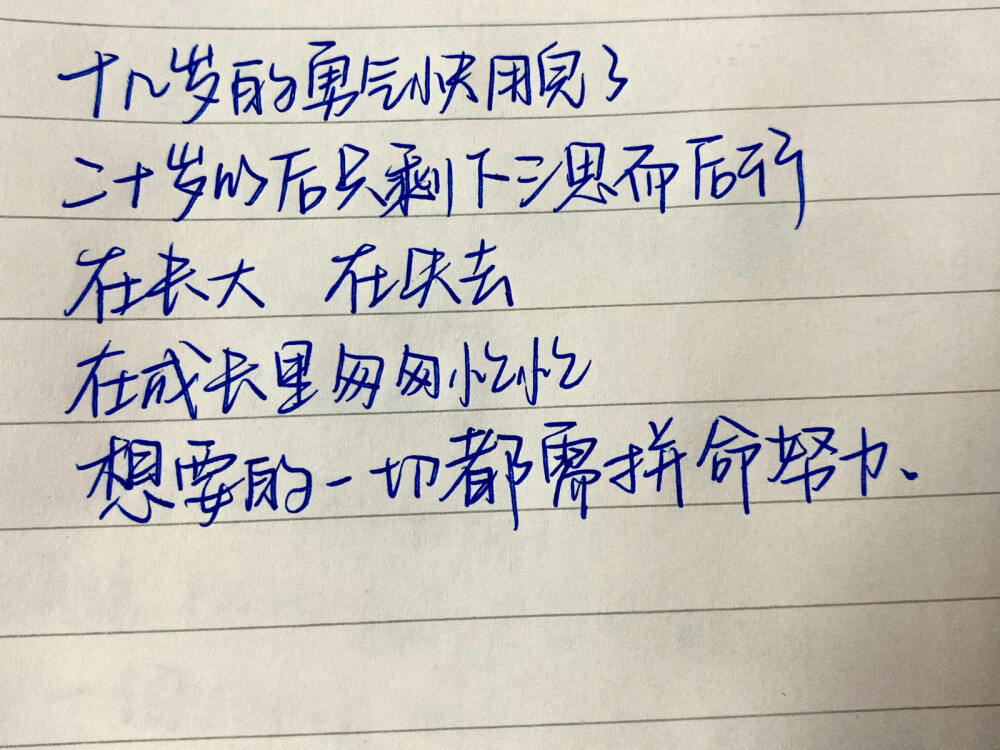 十几岁的勇气快用完了
二十岁以后只剩下三思而后行
在长大 在失去
在成长里匆匆忙忙
想要的一切都需拼命努力、